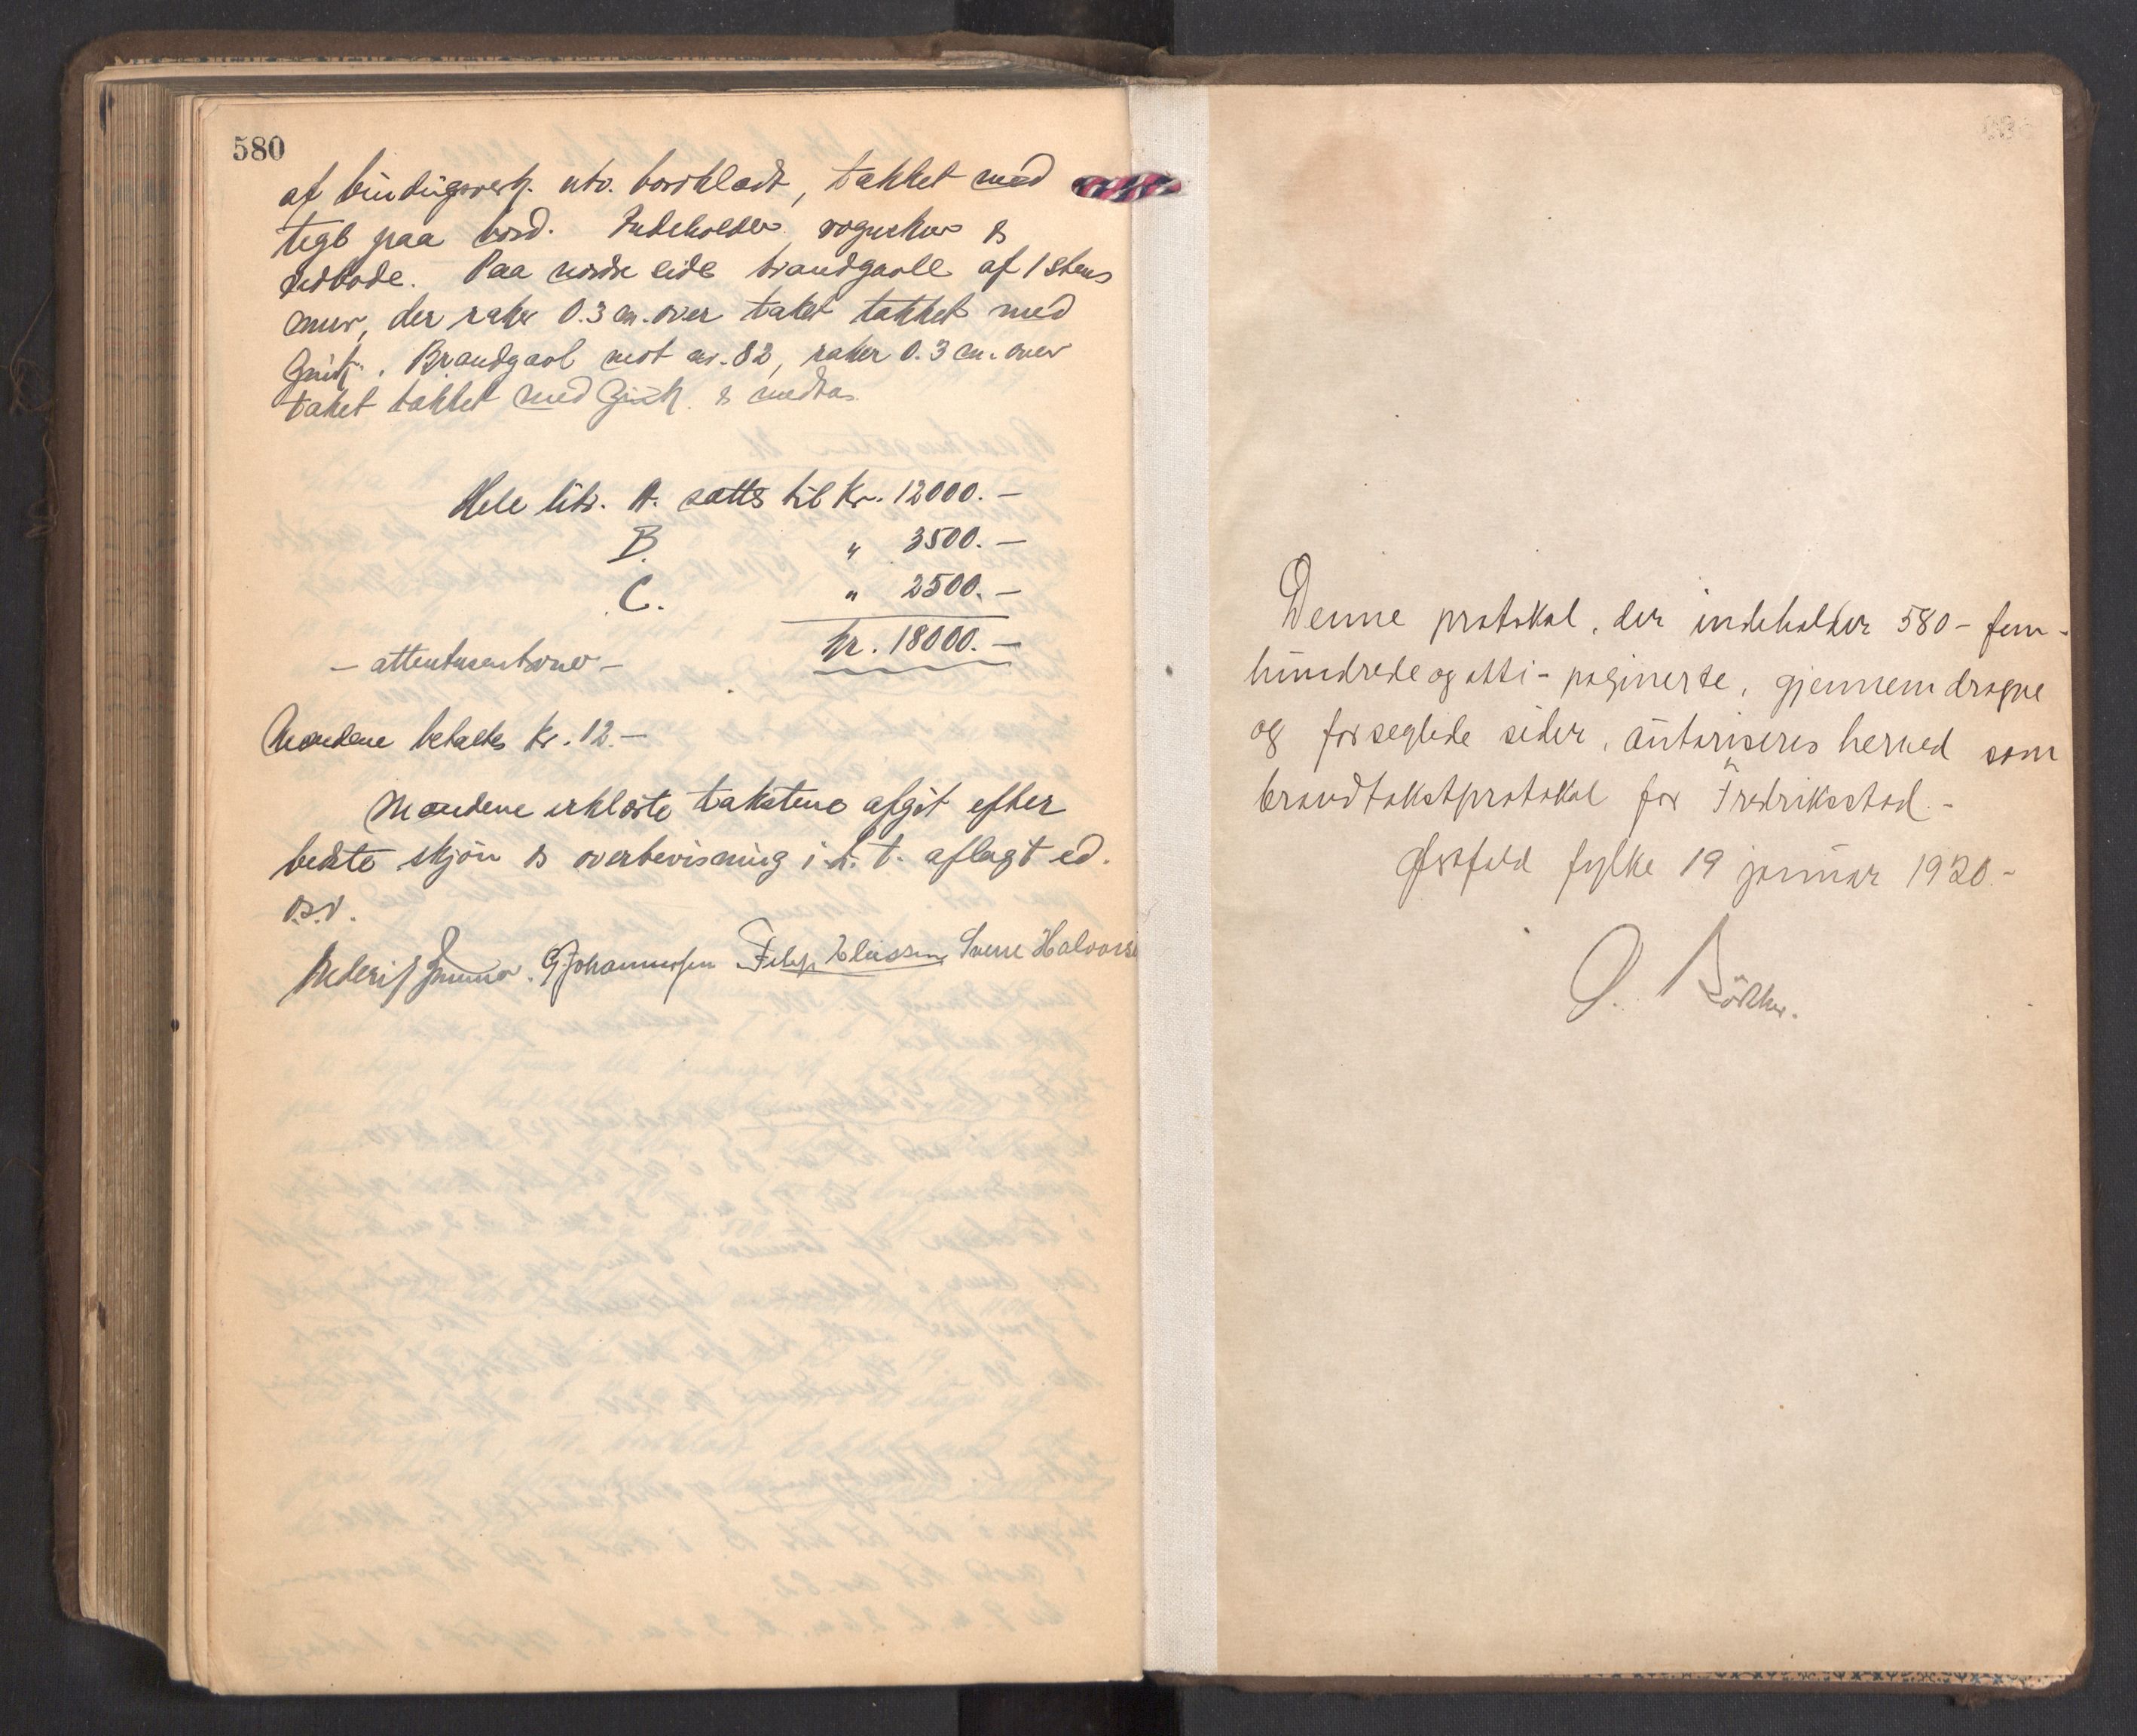 580
af bindingsverk. utv. bordklædt, tækket med
tegl paa bord. Indeholder vognskur &
vedbode. Paa nordre side brandgavl af 1 stens
mur, der raker 0.3 m. over taket tækket med
zink. Brandgavl mot nr. 82, raker 0.3 m. over
taket tækket med zink. & medtas.
Hele litr. A. sattes til Kr. 12000.-
B. " 3500.-
C. " 2500.-
kr. 18000.-
- attentusenkroner -
Mændene betaltes kr. 12.-
Mændene erklærte takstene afgit efter
bedste skjøn & overbevisning i h. t. aflagt ed.
o.s.v.
G. Johannessen Filip Eliassen Sverre Halvorse
Denne protokol, der indeholder 580 - fem-
hundrede og otti - paginerte, gjennemdragne
og forseglede sider, autoriseres herved som
brandtakstprotokol for Fredriksstad.-
Østfold fylke 19 januar 1920.-
O.